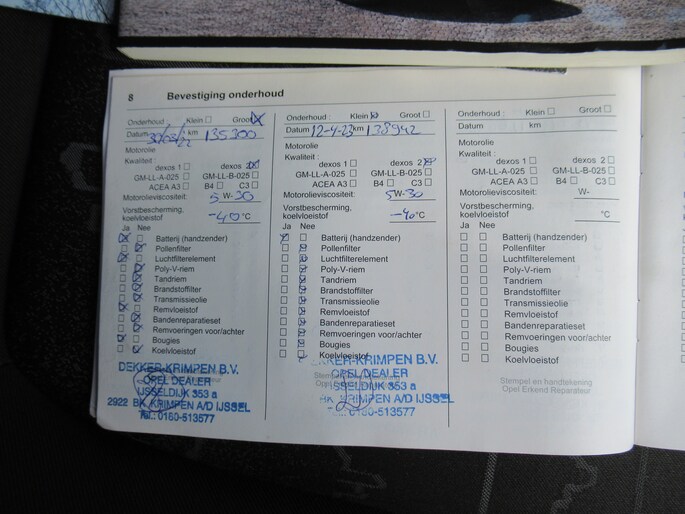 8 Bevestiging onderhoud
Onderhoud : Klein Groot
Datum km 135300
Motorolie
Kwaliteit :
dexos 1 dexos 2
GM-LL-A-025 GM-LL-B-025
ACEA A3 B4 C3
Motorolieviscositeit: 5 W-30
Vorstbescherming,
koelvloeistof -40 °C
Ja Nee
Batterij (handzender)
Pollenfilter
Luchtfilterelement
Poly-V-riem
Tandriem
Brandstoffilter
Transmissieolie
Remvloeistof
Bandenreparatieset
Remvoeringen voor/achter
Bougies
Koelvloeistof
DEKKER-KRIMPEN B.V.
OPEL DEALER
IJSSELDIJK 353 a
2922 BK KRIMPEN A/D IJSSEL
Tel.: 0180-513577
Onderhoud : Klein Groot
Datum 12-4-23 km 138942
Motorolie
Kwaliteit :
dexos 1 dexos 2
GM-LL-A-025 GM-LL-B-025
ACEA A3 B4 C3
Motorolieviscositeit: 5W-30
Vorstbescherming,
koelvloeistof -40 °C
Ja Nee
Batterij (handzender)
Pollenfilter
Luchtfilterelement
Poly-V-riem
Tandriem
Brandstoffilter
Transmissieolie
Remvloeistof
Bandenreparatieset
Remvoeringen voor/achter
Bougies
Koelvloeistof
DEKKER-KRIMPEN B.V.
OPEL DEALER
IJSSELDIJK 353 a
BK KRIMPEN A/D IJSSEL
0180-513577
Onderhoud : Klein Groot
Datum km
Motorolie
Kwaliteit :
dexos 1 dexos 2
GM-LL-A-025 GM-LL-B-025
ACEA A3 B4 C3
Motorolieviscositeit: W-
Vorstbescherming,
koelvloeistof °C
Ja Nee
Batterij (handzender)
Pollenfilter
Luchtfilterelement
Poly-V-riem
Tandriem
Brandstoffilter
Transmissieolie
Remvloeistof
Bandenreparatieset
Remvoeringen voor/achter
Bougies
Koelvloeistof
Stempel en handtekening
Opel Erkend Reparateur